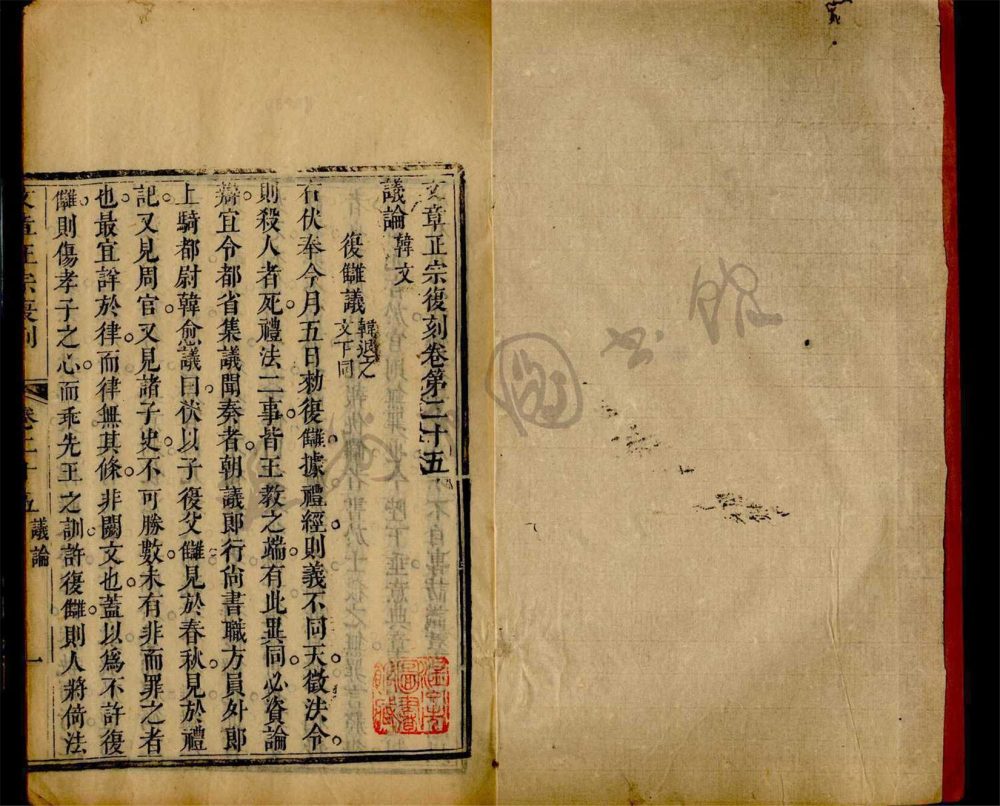 文章正宗復刻卷第二十五
議論 韓文
復讎議 韓退之文下同
右伏奉今月五日勑復讎據禮經則義不同天徵法令
則殺人者死禮法二事皆王教之端有此異同必資論
辯宜令都省集議聞奏者朝議郎行尚書職方員外郎
上騎都尉韓愈議曰伏以子復父讎見於春秋見於禮
記又見周官又見諸子史不可勝數未有非而罪之者
也最宜詳於律而律無其條非闕文也蓋以為不許復
讎則傷孝子之心而乖先王之訓許復讎則人將倚法
文章正宗復刻 卷二十五 議論 一